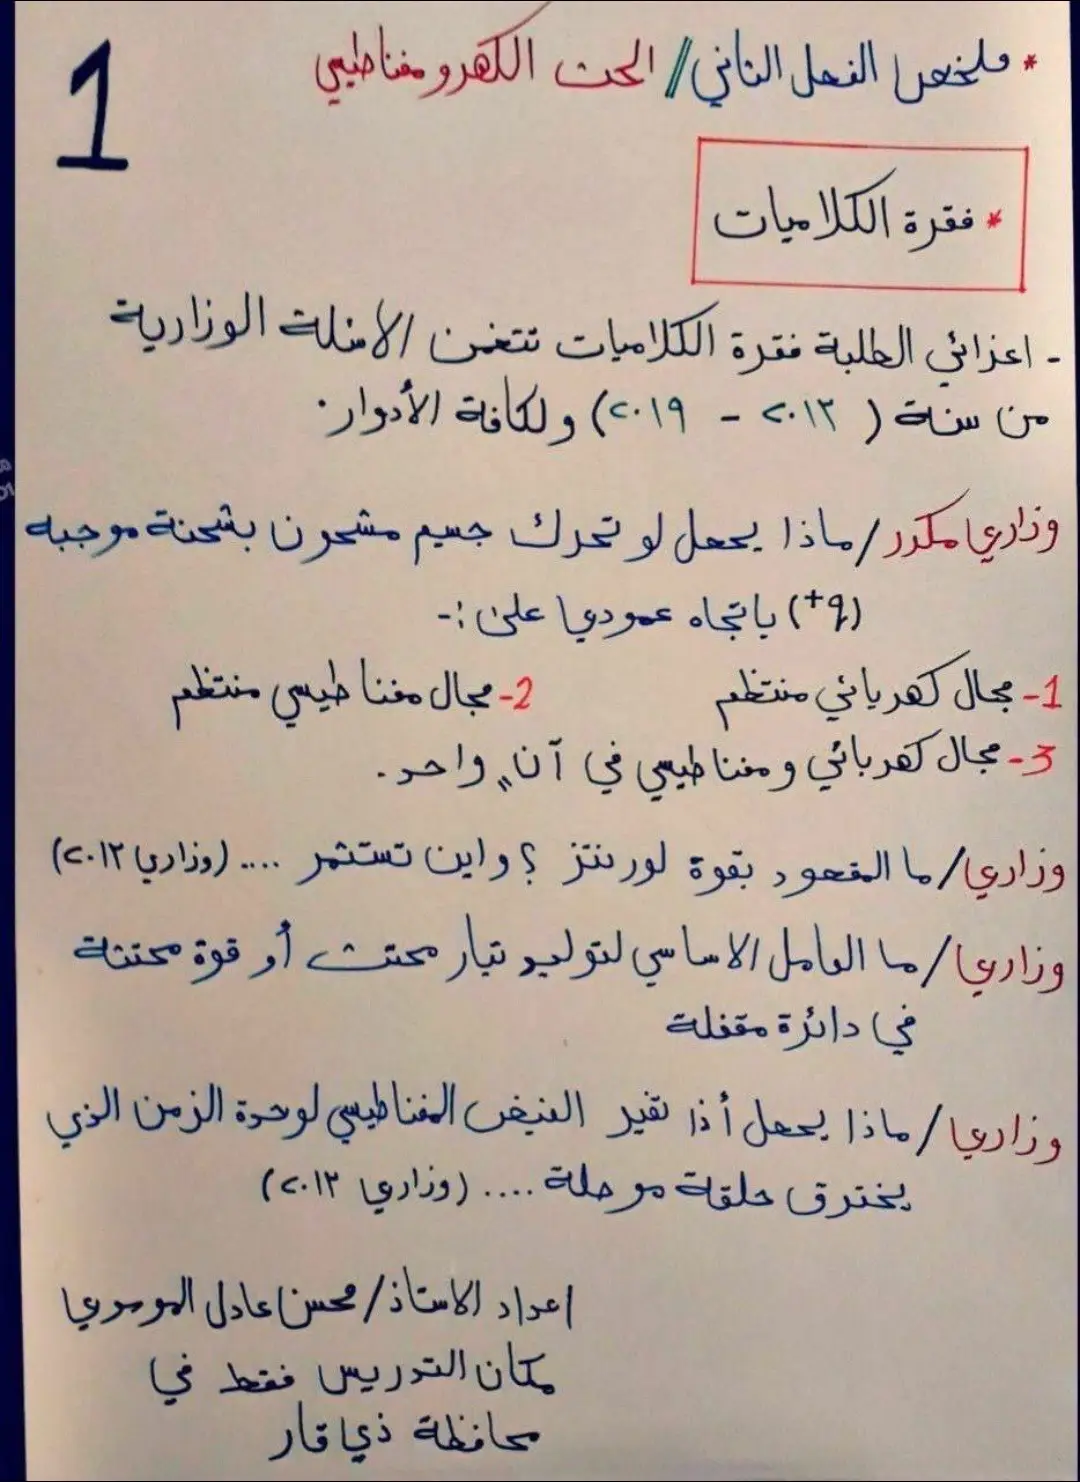 1
* ملخص الفصل الثاني // الحث الكهرومغناطيسي
* فقرة الكلاميات
- اعزائي الطلبة فقرة الكلاميات تتضمن الأسئلة الوزارية
من سنة ( ٢٠١٣ - ٢٠١٩) ولكافة الأدوار.
وزاري مكرر / ماذا يحصل لو تحرك جسيم مشحون بشحنة موجبه
(+q) باتجاه عمودي على :-
1- مجال كهربائي منتظم 2- مجال مغناطيسي منتظم
3- مجال كهربائي ومغناطيسي في آنٍ واحد.
وزاري / ما المقصود بقوة لورنتز ؟ واين تستثمر .... (وزاري ٢٠١٣)
وزاري / ما العامل الاساسي لتوليد تيار محتث أو قوة محتثة
في دائرة مقفلة
وزاري / ماذا يحصل أذا تغير الفيض المغناطيسي لوحدة الزمن الذي
يخترق حلقة موصلة .... (وزاري ٢٠١٣)
اعداد الاستاذ / محسن عادل الموسوي
مكان التدريس فقط في
محافظة ذي قار